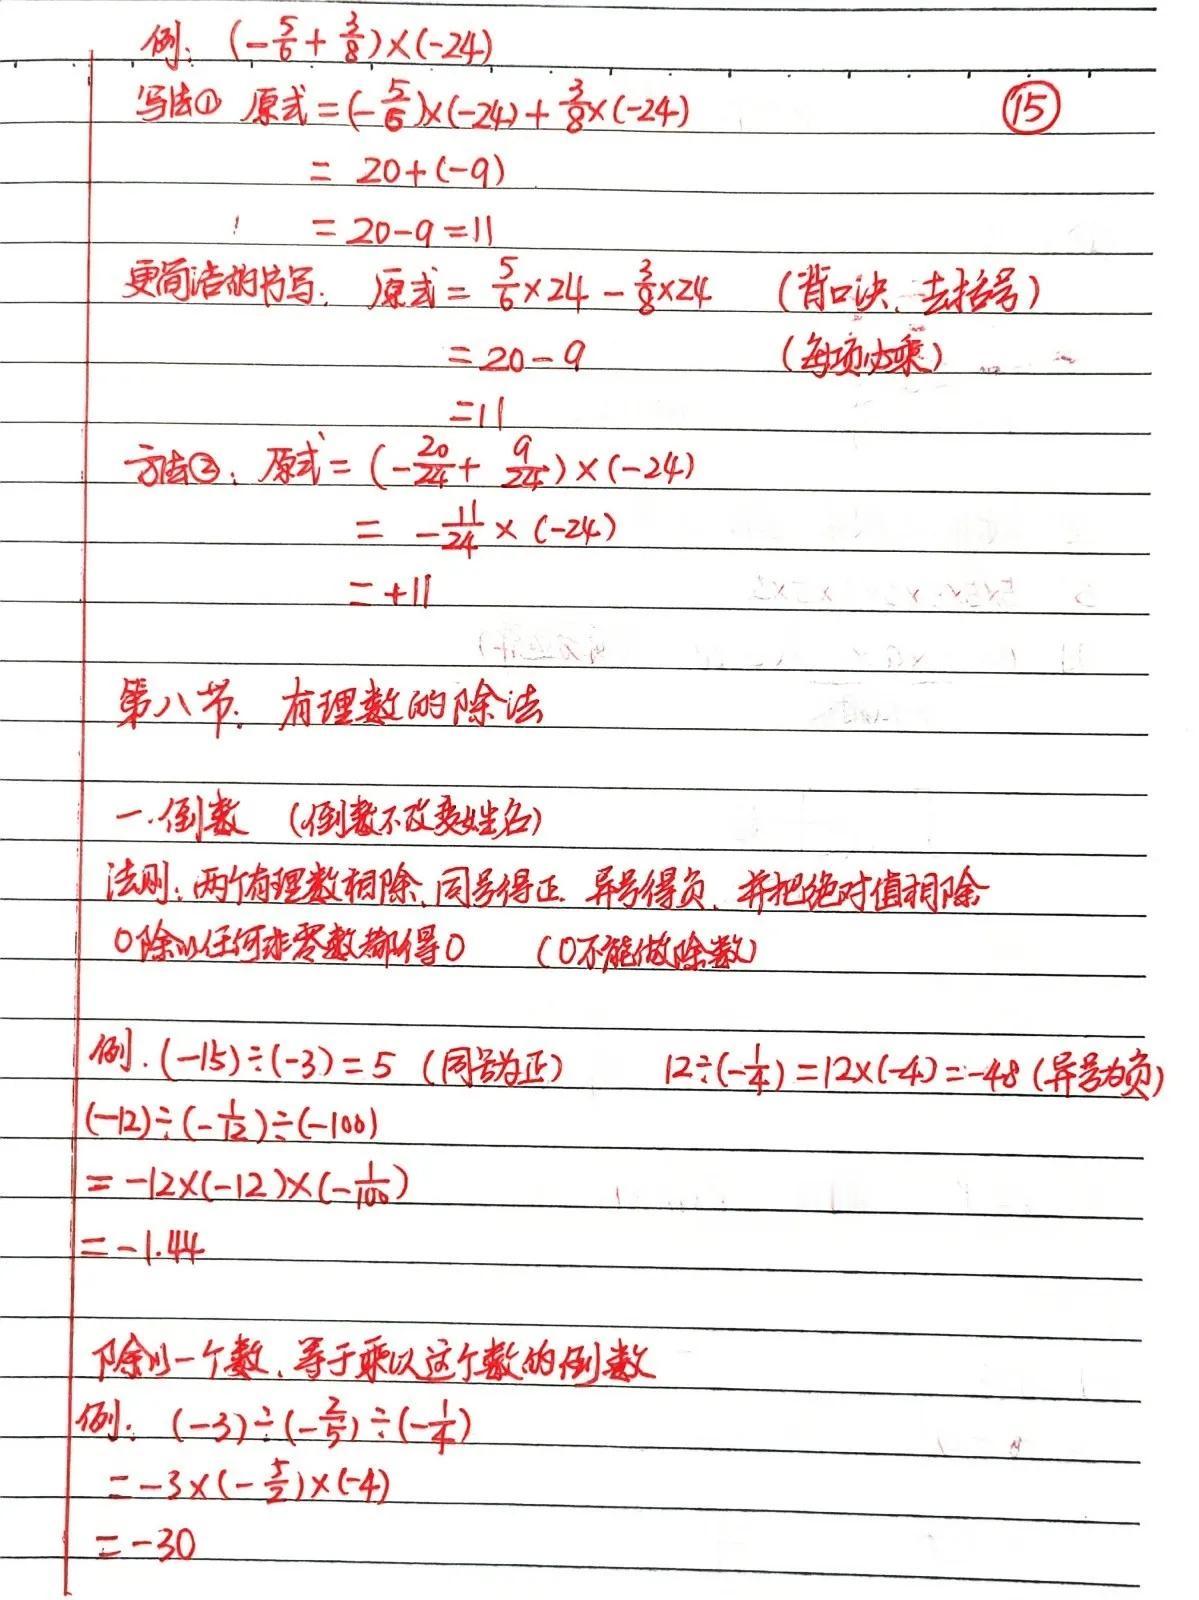 例: (-5/6 + 3/8)×(-24)
写法① 原式=(-5/6)×(-24)+3/8×(-24)
⑮
= 20+(-9)
= 20-9=11
更简洁的书写: 原式= 5/6×24 - 3/8×24 (背口决、去括号)
=20-9 (每项必乘)
=11
方法②: 原式=(-20/24+ 9/24)×(-24)
= -11/24 × (-24)
=+11
第八节. 有理数的除法
一.倒数 (倒数不改变姓名)
法则: 两个有理数相除,同号得正.异号得负,并把绝对值相除
0除以任何非零数都得0 (0不能做除数)
例.(-15)÷(-3)=5 (同号为正) 12÷(-1/4)=12×(-4)=-48(异号为负)
(-12)÷(-1/12)÷(-100)
=-12×(-12)×(-1/100)
=-1.44
除以一个数,等于乘以这个数的倒数
例: (-3)÷(-2/5)÷(-1/4)
=-3×(-5/2)×(-4)
=-30